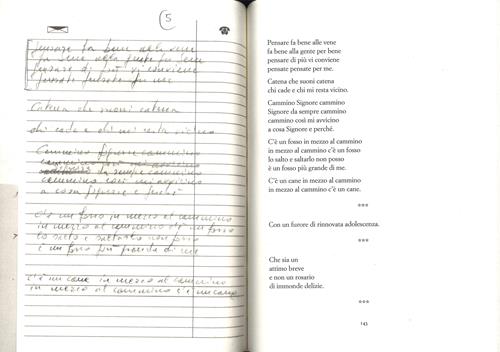 5
Pensare fa bene alle vene
fa bene alla gente per bene
pensare di più vi conviene
pensate pensate per me
Catena che suoni catena
chi cade e chi mi resta vicino
Cammino Signore cammino
cammino così mi avvicino
da sempre cammino
cammino così mi avvicino
a cosa Signore e perché
C'è un fosso in mezzo al cammino
in mezzo al cammino c'è un fosso
lo salto e saltarlo non posso
è un fosso più grande di me
C'è un cane in mezzo al cammino
in mezzo al cammino c'è un cane
Pensare fa bene alle vene
fa bene alla gente per bene
pensare di più vi conviene
pensate pensate per me.
Catena che suoni catena
chi cade e chi mi resta vicino.
Cammino Signore cammino
Signore da sempre cammino
cammino così mi avvicino
a cosa Signore e perché.
C'è un fosso in mezzo al cammino
in mezzo al cammino c'è un fosso
lo salto e saltarlo non posso
è un fosso più grande di me.
C'è un cane in mezzo al cammino
in mezzo al cammino c'è un cane.
***
Con un furore di rinnovata adolescenza.
***
Che sia un
attimo breve
e non un rosario
di immonde delizie.
***
143